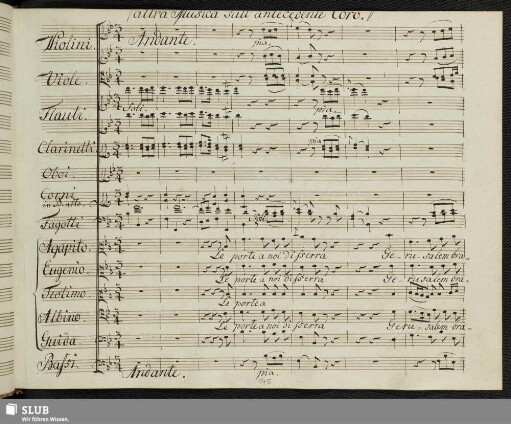 altra Musica sull'antecedente Coro.
Violini.
Andante.
pia.
Viole.
Flauti.
Soli.
pia.
Clarinetti.
pia.
Oboi.
Corni
in B: alto.
Fagotti
Soli
Agapito.
Le porte a noi disserra Ge-ru-salem bra-
Eugenio.
Le porte a noi disserra Ge-rusalem bra-
Teotimo.
Le porte a
Albino.
Le porte a noi disserra Geru-salem bra-
Guida.
Bassi.
Andante.
pia.
SLUB
Wir führen Wissen.